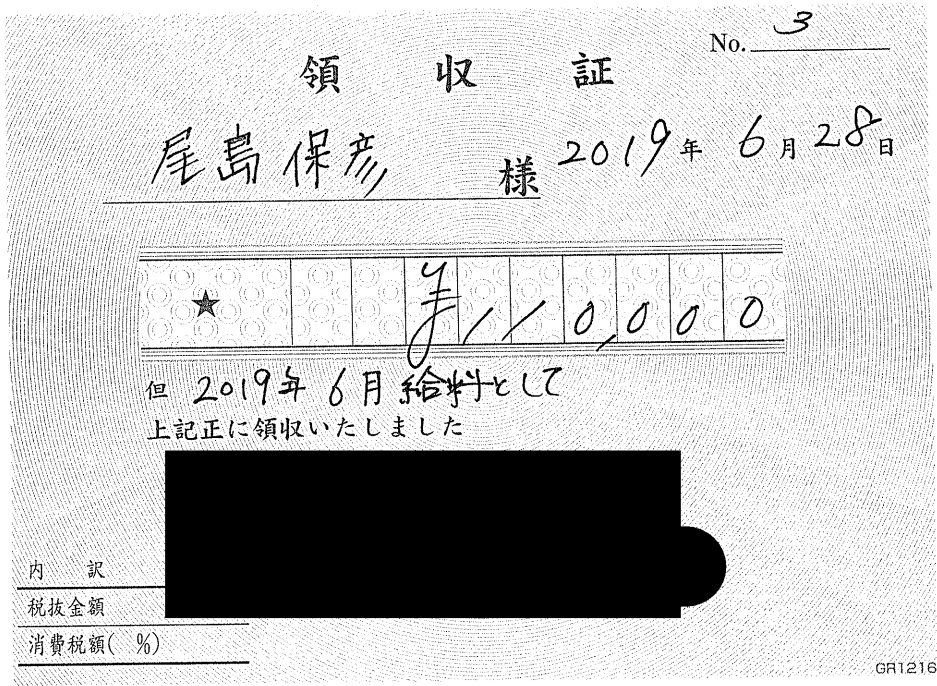 No. 3
領 収 証
尾島保彦 様 2019年 6月28日
★ ¥110,000
但 2019年 6月 給料として
上記正に領収いたしました
内 訳
税抜金額
消費税額( %)
GR1216